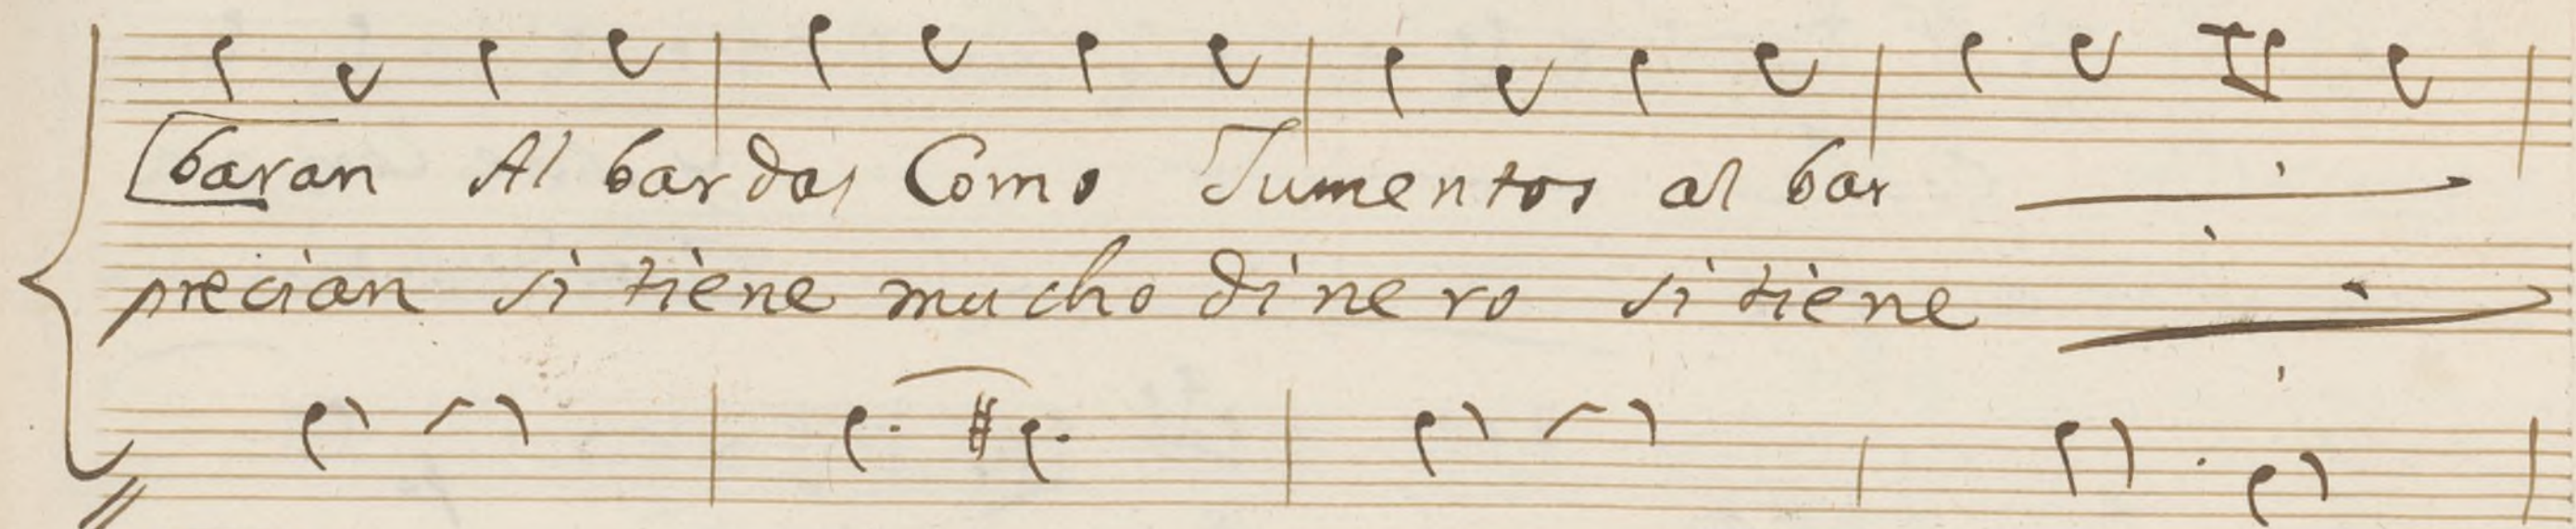 baran Al bardas Como Jumentos al bar
precian si tiene mucho dinero si tiene